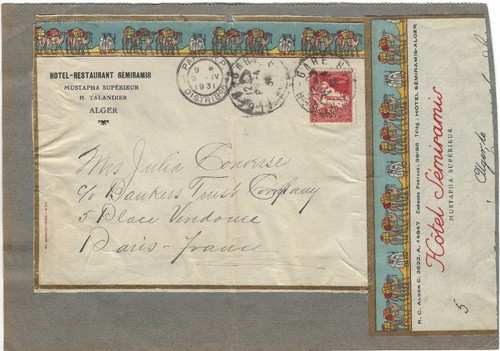 HOTEL-RESTAURANT SÉMIRAMIS
MUSTAPHA SUPÉRIEUR
H. TALANDIER
ALGER
1931
DISTRIBUTION
GARE
Mrs Julia Converse
c/o Bankers Trust Company
5 Place Vendome
Paris - France
R. C. ALGER C. 2822, A. 14947 CHÈQUES POSTAUX: 39-86 Télég: HOTEL SÉMIRAMIS-ALGER
Hôtel Sémiramis
MUSTAPHA SUPÉRIEUR
Alger, le
5